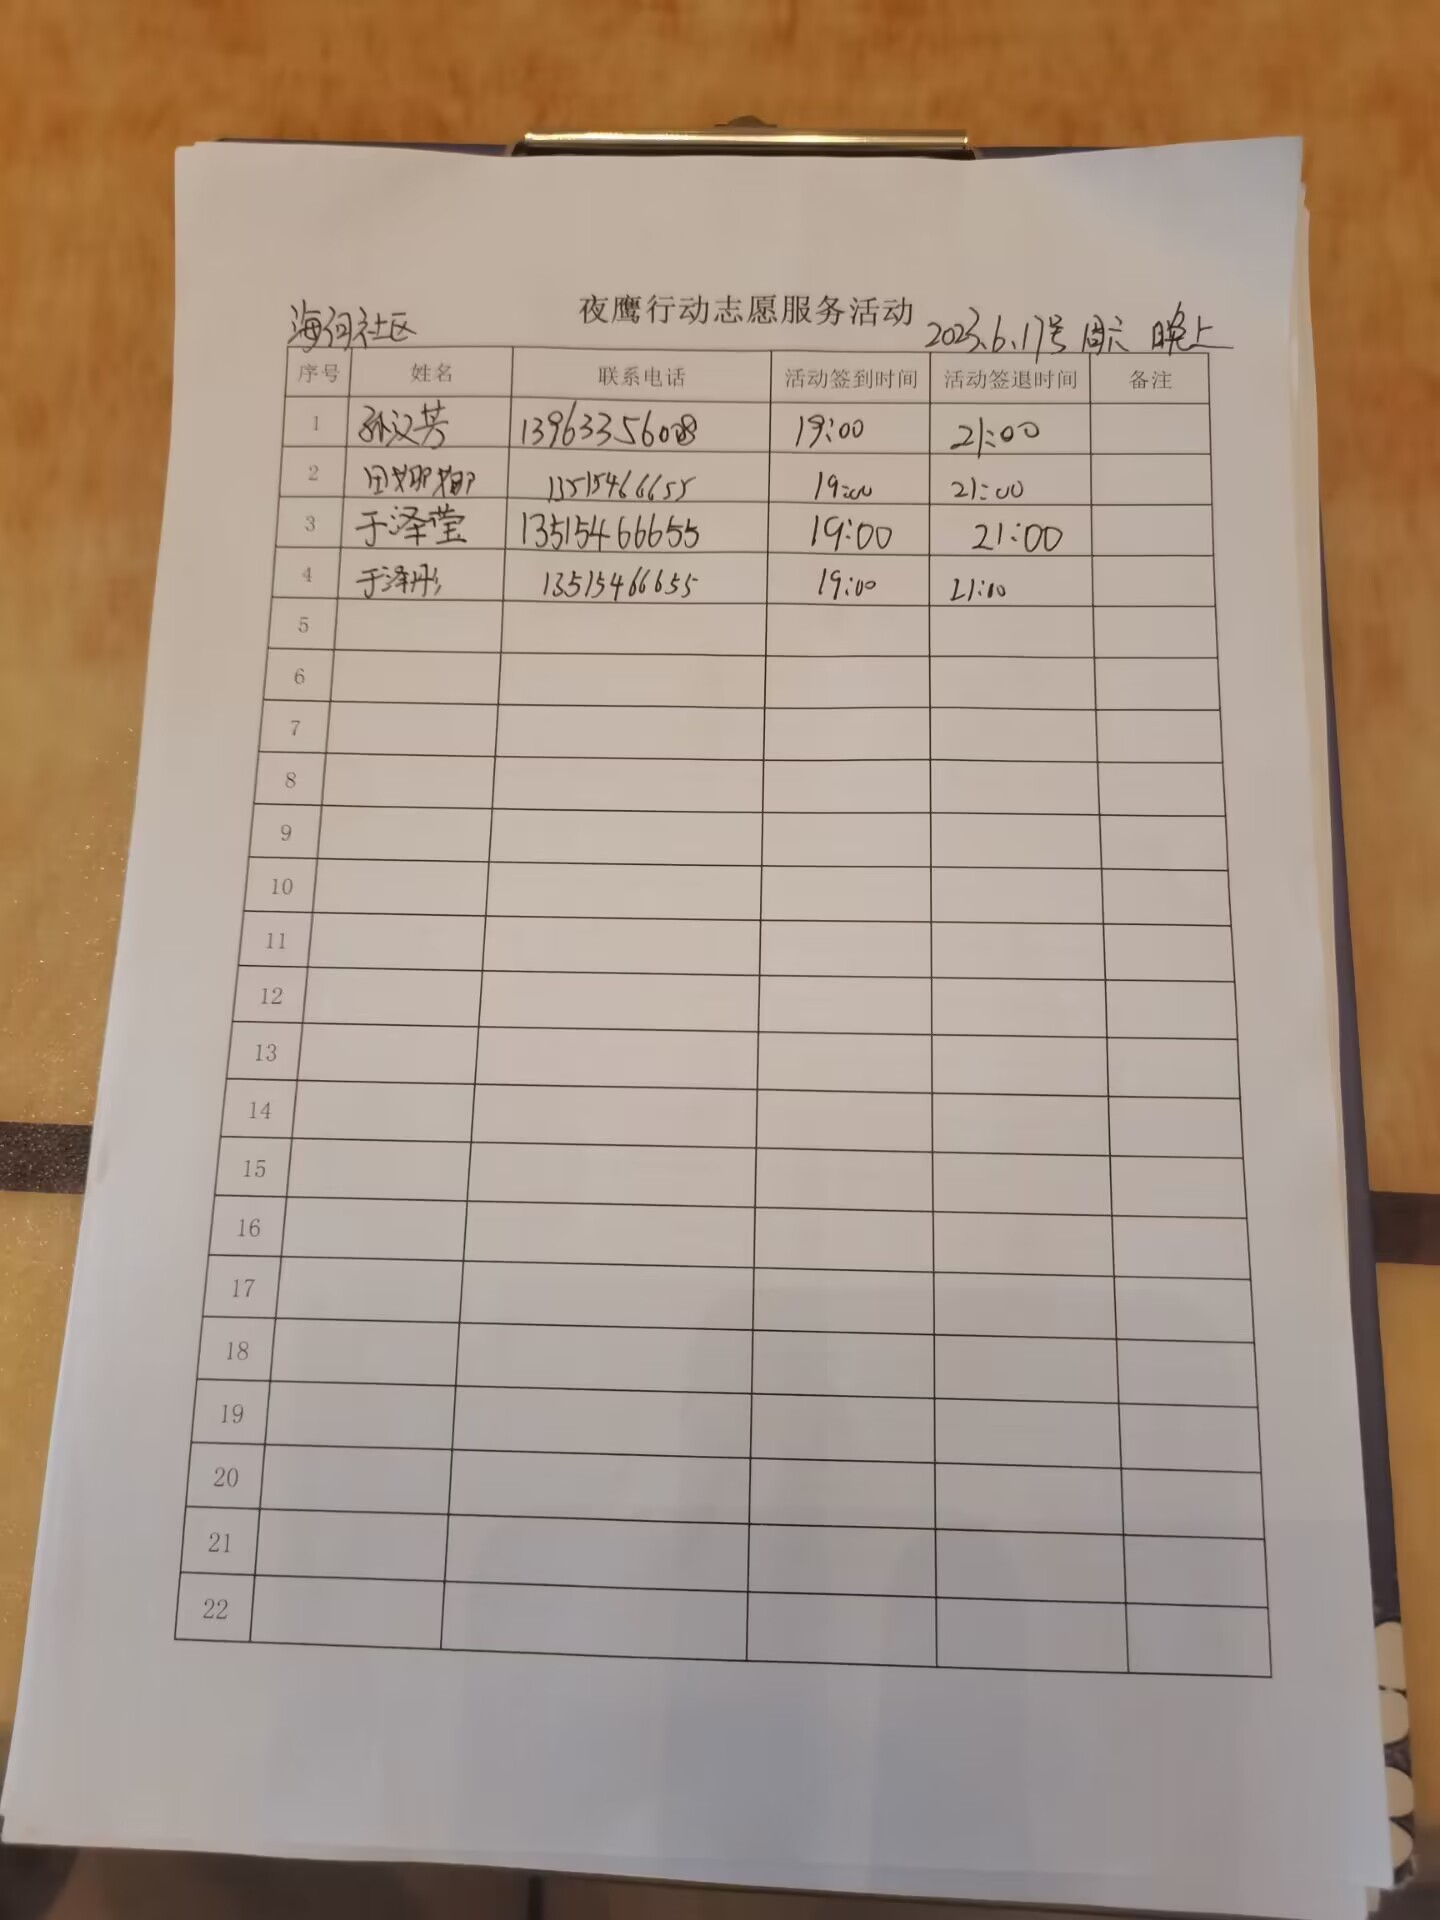 夜鹰行动志愿服务活动
海河社区 2023.6.17号 周六 晚上
序号 姓名 联系电话 活动签到时间 活动签退时间 备注
1 孙汉芳 13963356008 19:00 21:00
2 田娜娜 13515466655 19:00 21:00
3 于泽莹 13515466655 19:00 21:00
4 于泽彤 13515466655 19:00 21:00
5
6
7
8
9
10
11
12
13
14
15
16
17
18
19
20
21
22